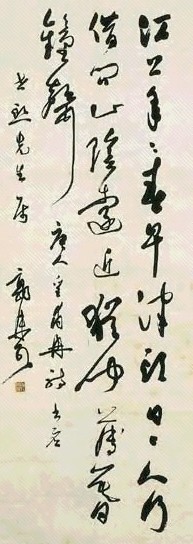 江上年々春早津頭日々人行
借問山陰遠近猶聞薄暮
鐘聲 唐人皇甫冉詩書應
先生属 郭